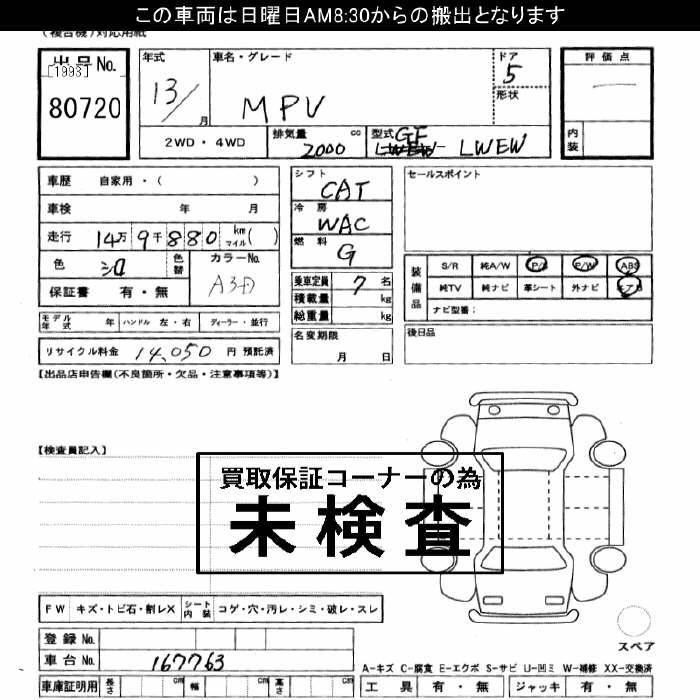 この車両は日曜日AM8:30からの搬出となります
(複合機)対応用紙
出品No.
[1993]
80720
年式
13/
月
車名・グレード
MPV
ドア
5
形状
評価点
内装
2WD・4WD
排気量
cc
2000
型式
GF
LWEW LWEW
車歴 自家用・( )
車検 年 月
走行 14万9千880 km マイル( )
色 シロ
色替
カラーNo.
A3D
保証書 有・無
シフト
CAT
冷房
WAC
燃料
G
乗車定員 7 名
積載量 kg
総重量 kg
セールスポイント
装備品
S/R 純A/W P/S P/W ABS
純TV 純ナビ 革シート 外ナビ エアB
ナビ型番:
モデル年式 年 ハンドル 左・右 ディーラー・並行
リサイクル料金 14,050 円 預託済
名変期限
月 日
後日品
【出品店申告欄(不良箇所・欠品・注意事項等)】
【検査員記入】
買取保証コーナーの為
未検査
FW キズ・トビ石・割レX シート内装 コゲ・穴・汚レ・シミ・破レ・スレ
登録No.
車台No. 167763
車庫証明用 長さ cm 幅 cm 高さ cm
スペア
A-キズ C-腐食 E-エクボ S-サビ U-凹ミ W-補修 XX-交換済
工具 有・無 ジャッキ 有・無